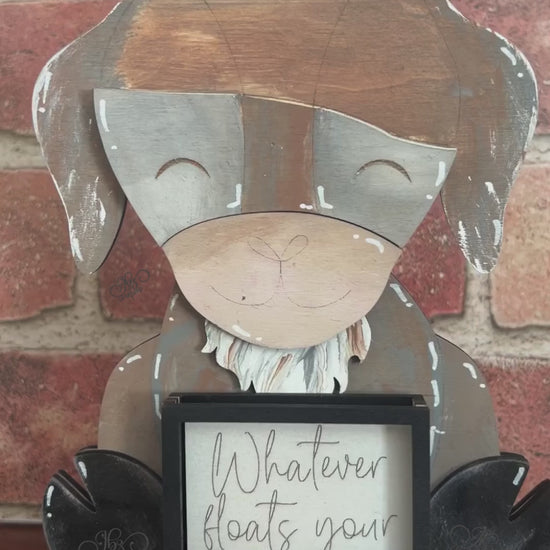 Whatever
floats your